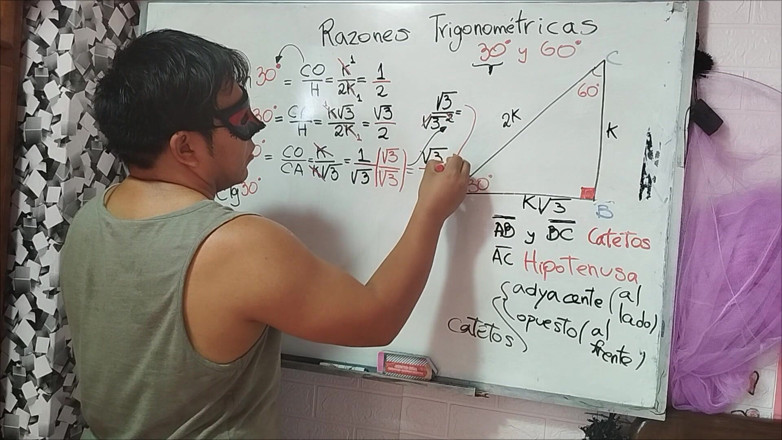 Razones Trigonométricas
30° y 60°
30° = CO/H = k/2k = 1/2
30° = CA/H = k√3/2k = √3/2
° = CO/CA = k/k√3 = 1/√3 (√3/√3) = √3
√3/√3² =
Ctg 30°
C
60°
2k
k
30°
k√3
B
AB y BC Catetos
AC Hipotenusa
Catetos
adyacente (al lado)
opuesto (al frente)